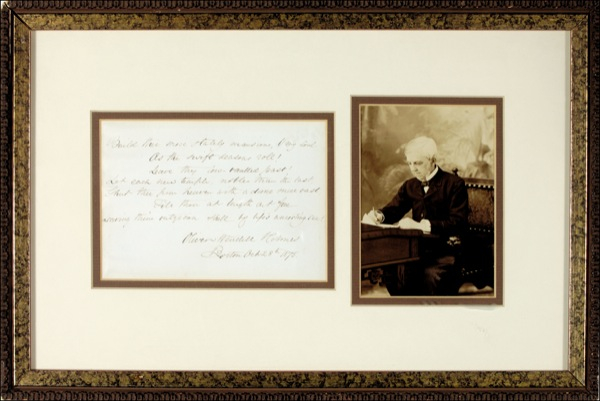 Build thee more stately mansions, O my soul
As the swift seasons roll!
Leave thy low-vaulted past!
Let each new temple, nobler than the last
Shut thee from heaven with a dome more vast
Till thou at length art free
Leaving thine outgrown shell by life's unresting sea!
Oliver Wendell Holmes
Boston